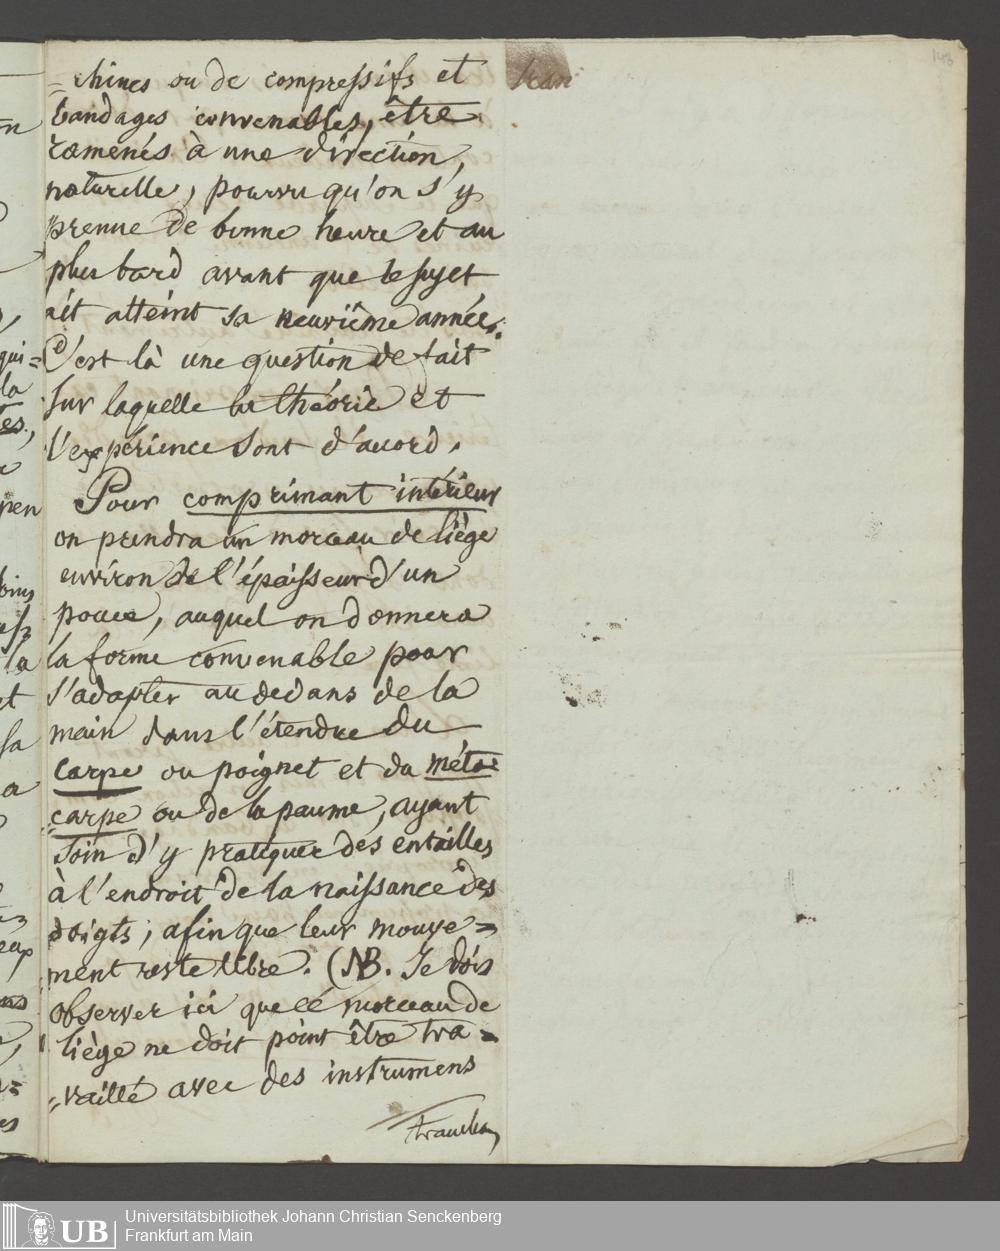 =chines ou de compressifs et
bandages convenables, être
ramenés à une direction,
naturelle, pourvu qu'on s'y
prenne de bonne heure et au
plus tard avant que le sujet
ait atteint sa neuvième année.
C'est là une question de fait
sur laquelle la théorie et
l'expérience sont d'accord.
Pour comprimant intérieur
on prendra un morceau de liège
environ de l'épaisseur d'un
pouce, auquel on donnera
la forme convenable pour
s'adapter au dedans de la
main dans l'étendue du
carpe ou poignet et du méta=
carpe ou de la paume, ayant
soin d'y pratiquer des entailles
à l'endroit de la naissance des
doigts; afin que leur mouve=
ment reste libre. (NB. Je dois
observer ici que ce morceau de
liège ne doit point être tra=
=vaillé avec des instrumens
tranchan
Universitätsbibliothek Johann Christian Senckenberg
Frankfurt am Main
UB